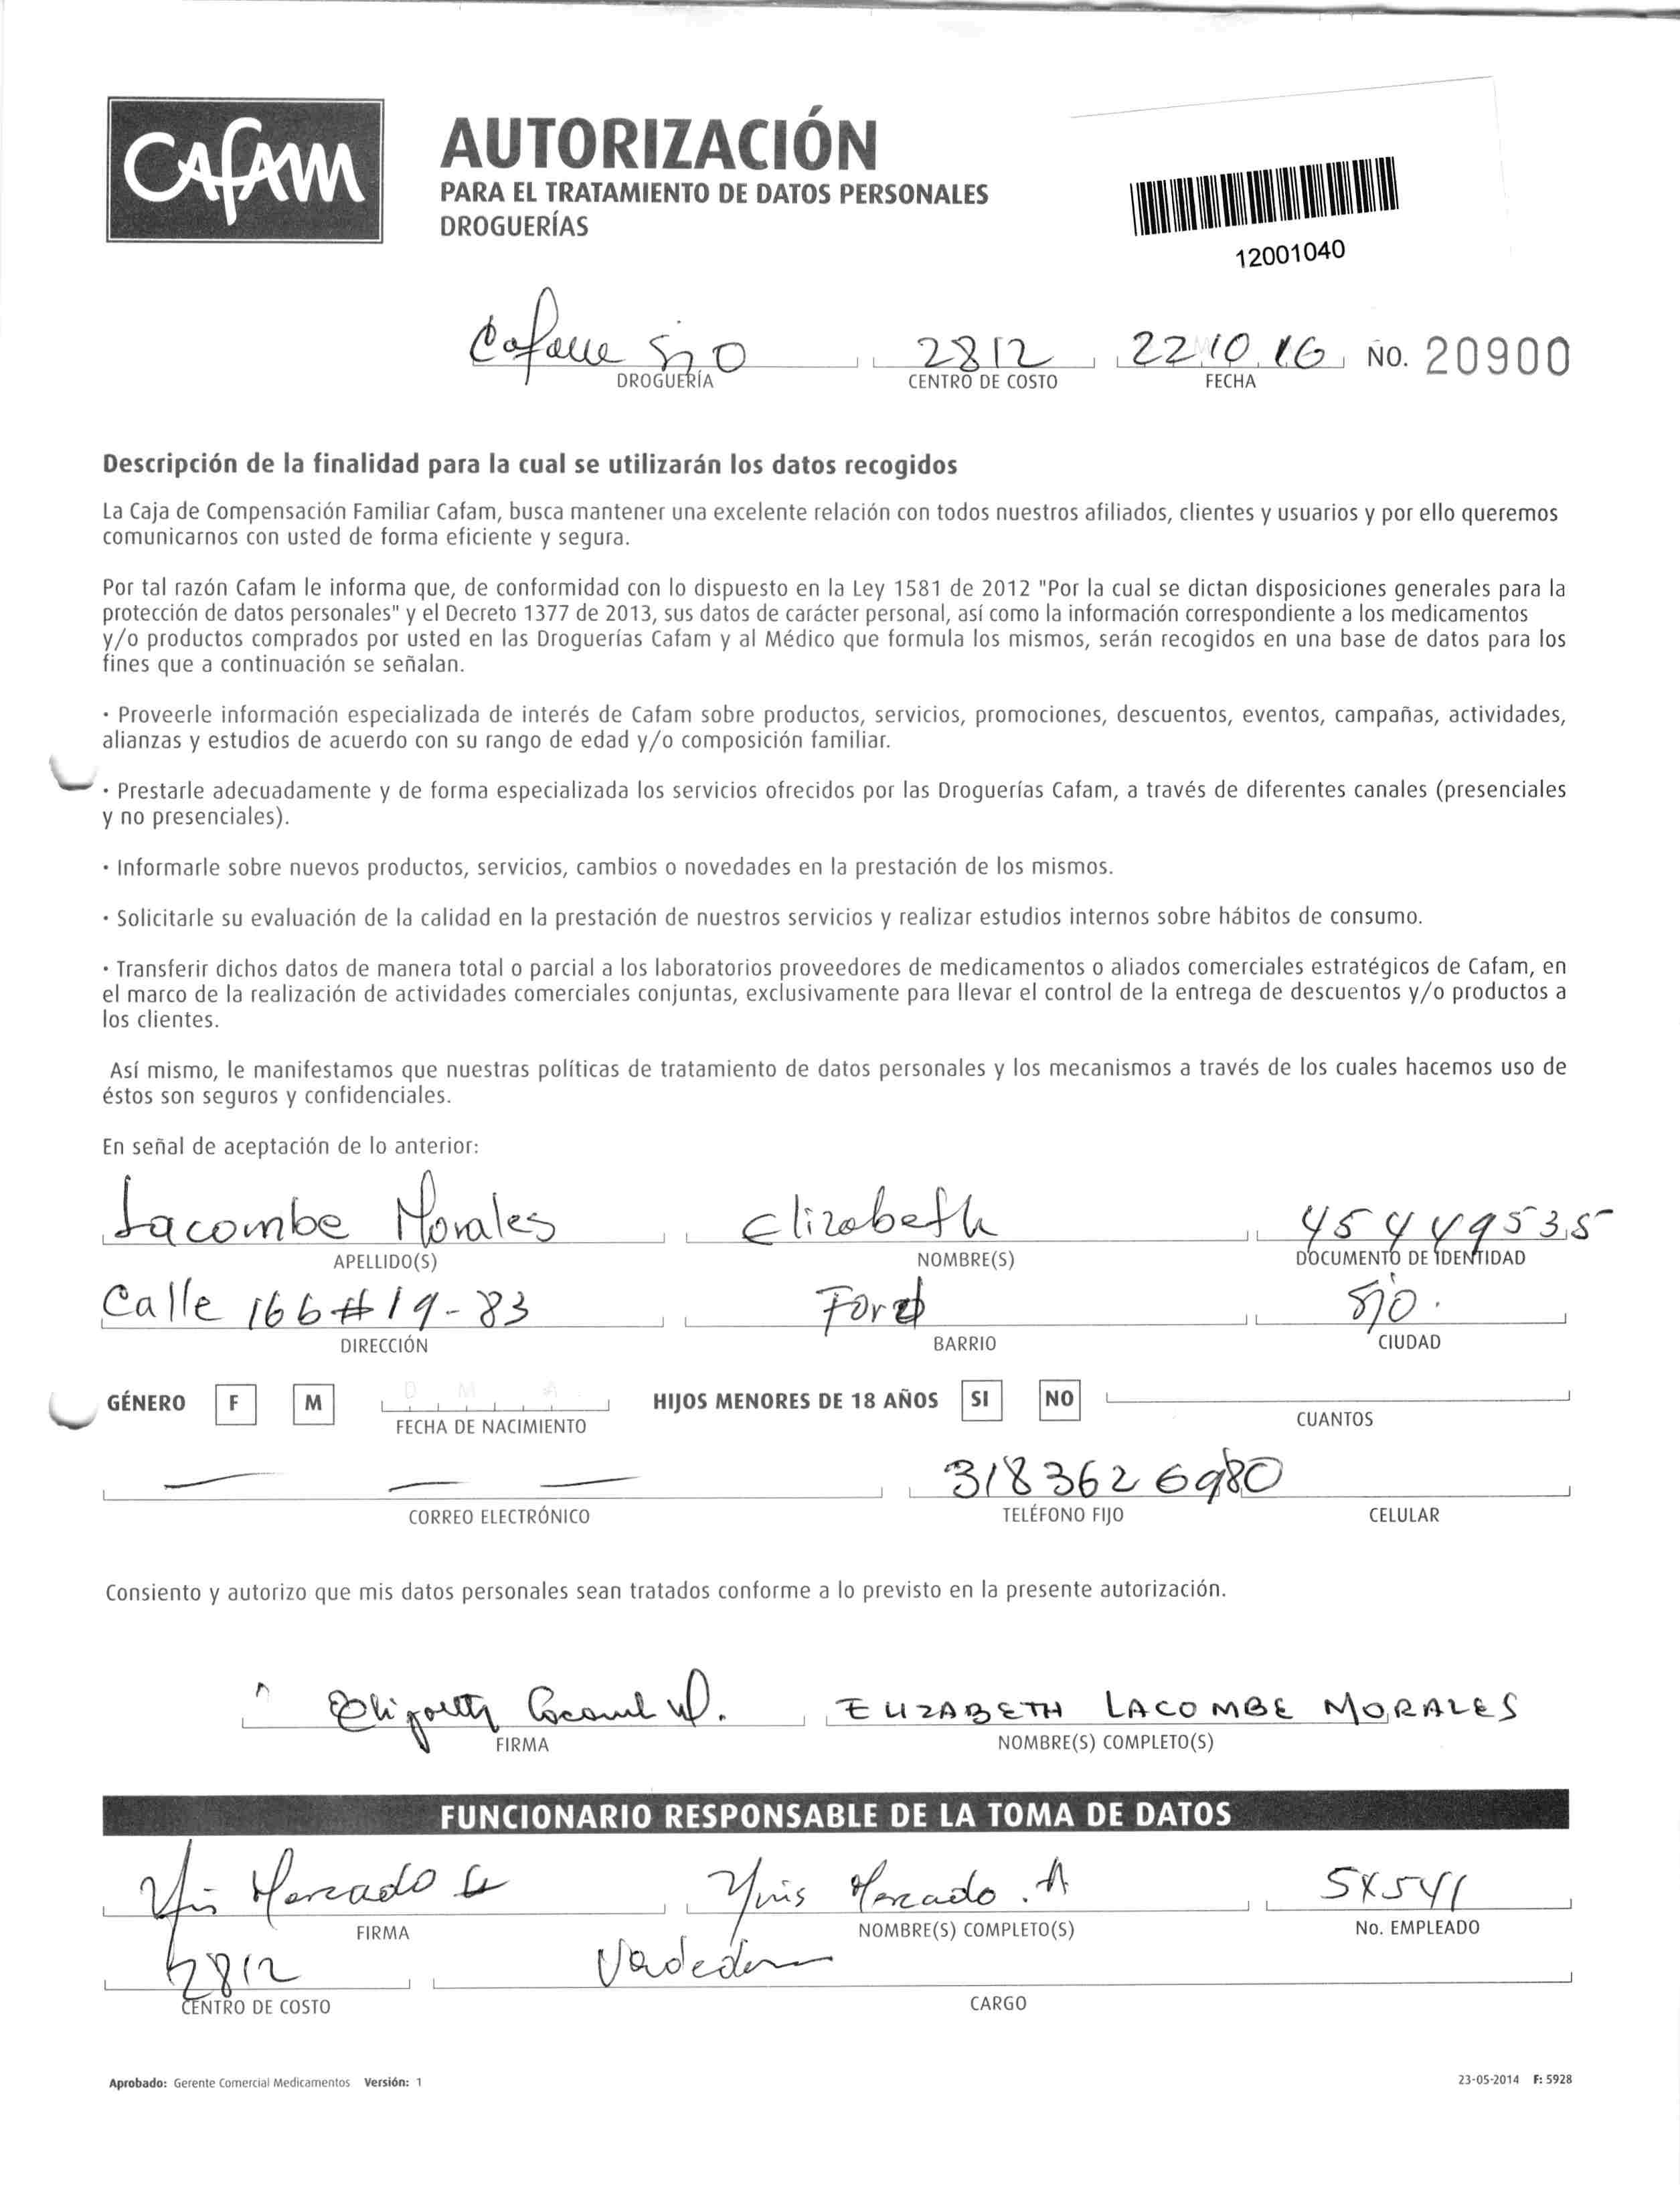 CAFAM
AUTORIZACIÓN
PARA EL TRATAMIENTO DE DATOS PERSONALES
DROGUERÍAS
12001040
2812 22 10 16 No. 20900
DROGUERÍA CENTRO DE COSTO FECHA
Descripción de la finalidad para la cual se utilizarán los datos recogidos
La Caja de Compensación Familiar Cafam, busca mantener una excelente relación con todos nuestros afiliados, clientes y usuarios y por ello queremos
comunicarnos con usted de forma eficiente y segura.
Por tal razón Cafam le informa que, de conformidad con lo dispuesto en la Ley 1581 de 2012 "Por la cual se dictan disposiciones generales para la
protección de datos personales" y el Decreto 1377 de 2013, sus datos de carácter personal, así como la información correspondiente a los medicamentos
y/o productos comprados por usted en las Droguerías Cafam y al Médico que formula los mismos, serán recogidos en una base de datos para los
fines que a continuación se señalan.
· Proveerle información especializada de interés de Cafam sobre productos, servicios, promociones, descuentos, eventos, campañas, actividades,
alianzas y estudios de acuerdo con su rango de edad y/o composición familiar.
· Prestarle adecuadamente y de forma especializada los servicios ofrecidos por las Droguerías Cafam, a través de diferentes canales (presenciales
y no presenciales).
· Informarle sobre nuevos productos, servicios, cambios o novedades en la prestación de los mismos.
· Solicitarle su evaluación de la calidad en la prestación de nuestros servicios y realizar estudios internos sobre hábitos de consumo.
· Transferir dichos datos de manera total o parcial a los laboratorios proveedores de medicamentos o aliados comerciales estratégicos de Cafam, en
el marco de la realización de actividades comerciales conjuntas, exclusivamente para llevar el control de la entrega de descuentos y/o productos a
los clientes.
Así mismo, le manifestamos que nuestras políticas de tratamiento de datos personales y los mecanismos a través de los cuales hacemos uso de
éstos son seguros y confidenciales.
En señal de aceptación de lo anterior:
Lacombe Morales Elizabeth 454449535
APELLIDO(S) NOMBRE(S) DOCUMENTO DE IDENTIDAD
Calle 166 # 19-83
DIRECCIÓN BARRIO CIUDAD
GÉNERO F M D M A HIJOS MENORES DE 18 AÑOS SI NO
FECHA DE NACIMIENTO CUANTOS
3183626980
CORREO ELECTRÓNICO TELÉFONO FIJO CELULAR
Consiento y autorizo que mis datos personales sean tratados conforme a lo previsto en la presente autorización.
ELIZABETH LACOMBE MORALES
FIRMA NOMBRE(S) COMPLETO(S)
FUNCIONARIO RESPONSABLE DE LA TOMA DE DATOS
Mercado Mercado . A 5X541
FIRMA NOMBRE(S) COMPLETO(S) No. EMPLEADO
2812
CENTRO DE COSTO CARGO
Aprobado: Gerente Comercial Medicamentos Versión: 1 23-05-2014 F: 5928